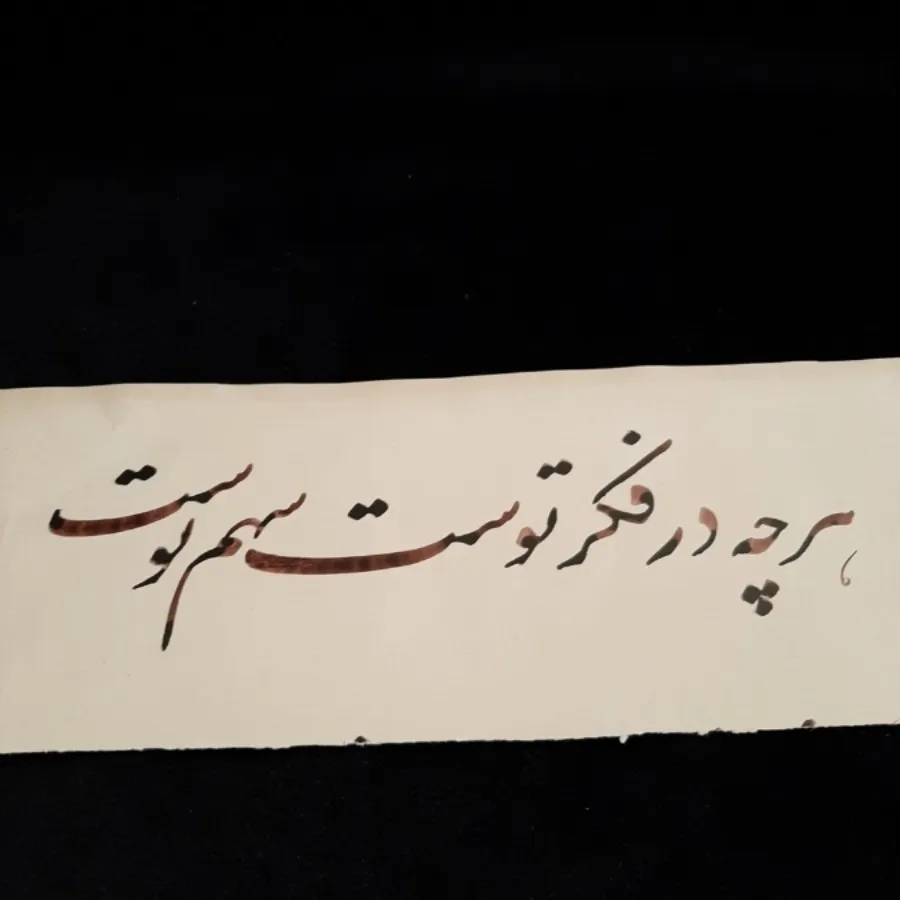 هرچه در فکر توست سهم توست